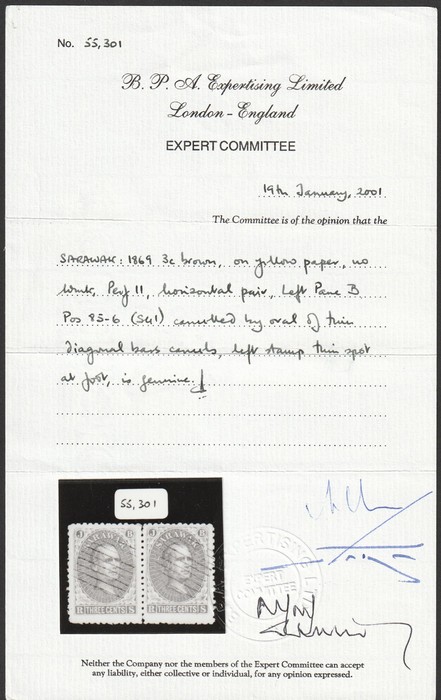 No. 55,301
B. P. A. Expertising Limited
London - England
EXPERT COMMITTEE
19th January, 2001
The Committee is of the opinion that the
SARAWAK: 1869 3c brown, on yellow paper, no
wmk, Perf 11, horizontal pair, Left Pane B
Pos 85-6 (SG1) cancelled by oval of thin
diagonal bars cancels, left stamp thin spot
at foot, is genuine.
55,301
SARAWAK SARAWAK
J B J B
R THREE CENTS S R THREE CENTS S
EXPERT
COMMITTEE
Neither the Company nor the members of the Expert Committee can accept
any liability, either collective or individual, for any opinion expressed.